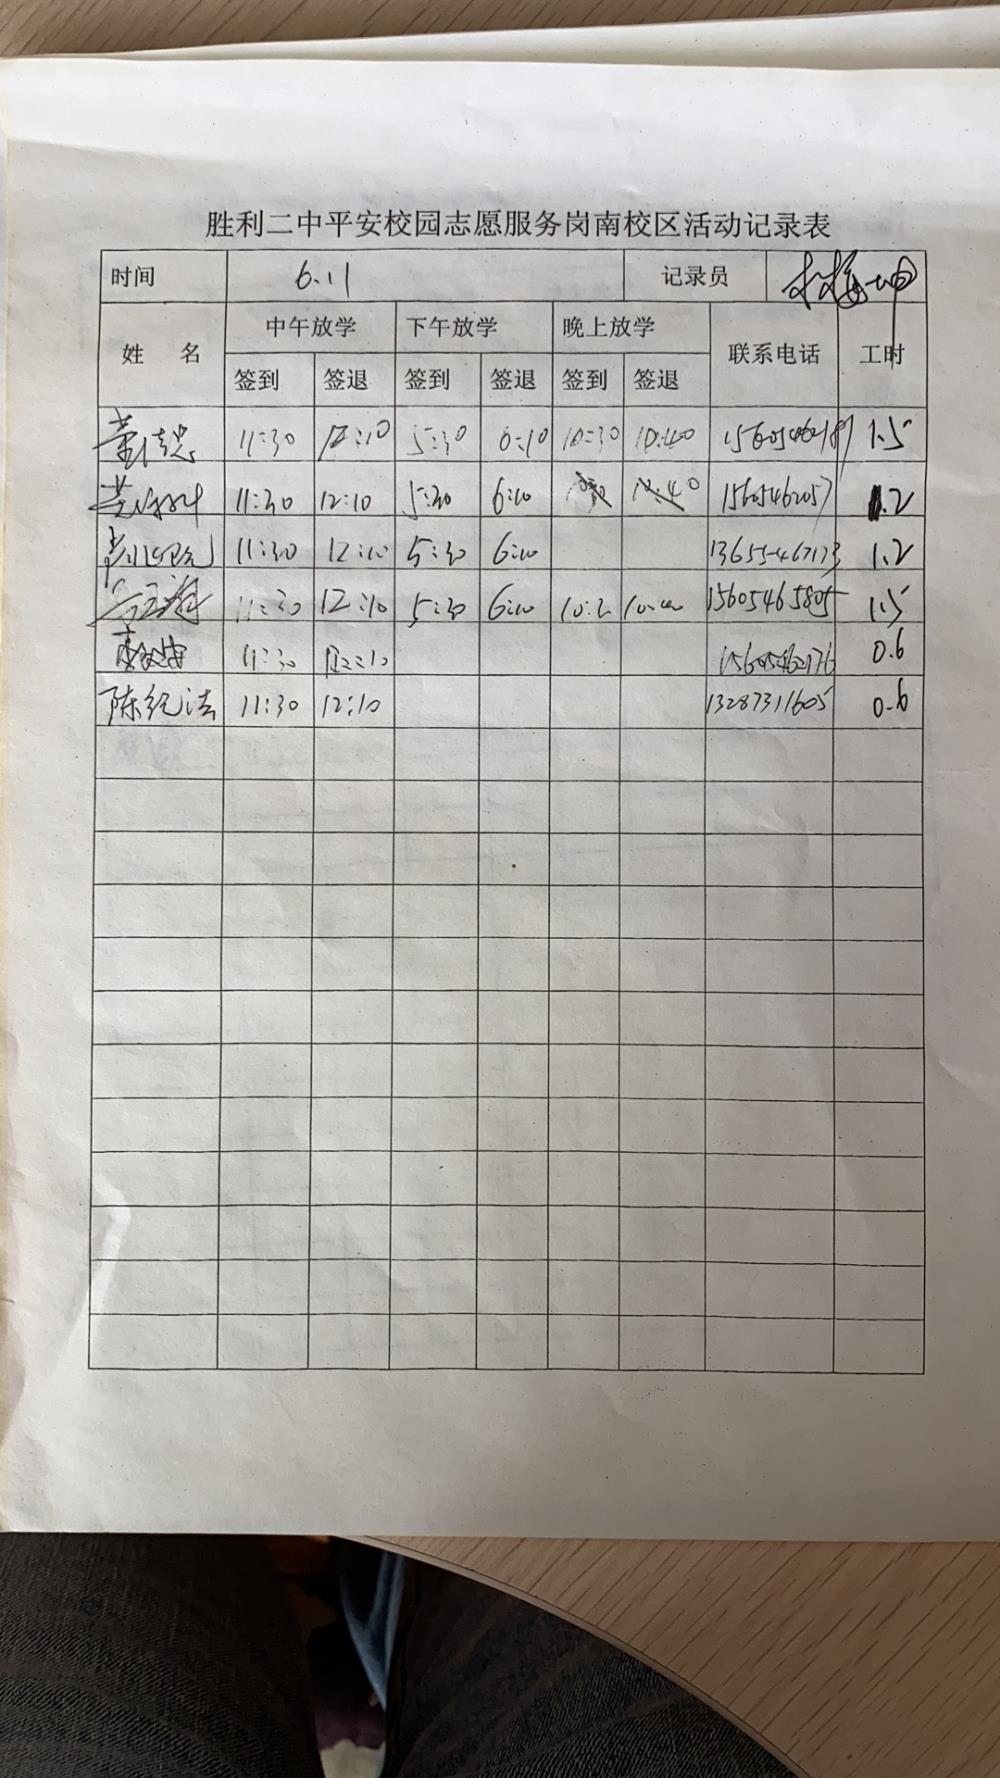 胜利二中平安校园志愿服务岗南校区活动记录表
时间 6.11 记录员
姓 名 中午放学 下午放学 晚上放学 联系电话 工时
签到 签退 签到 签退 签到 签退
11:30 12:10 5:30 6:10 10:30 10:40 1.5
11:30 12:10 5:30 6:10 10:40 1560546205 1.2
11:30 12:10 5:30 6:10 13655467173 1.2
11:30 12:10 5:30 6:10 15605465805 1.5
11:30 12:10 15605462176 0.6
陈纪法 11:30 12:10 13287311605 0.6